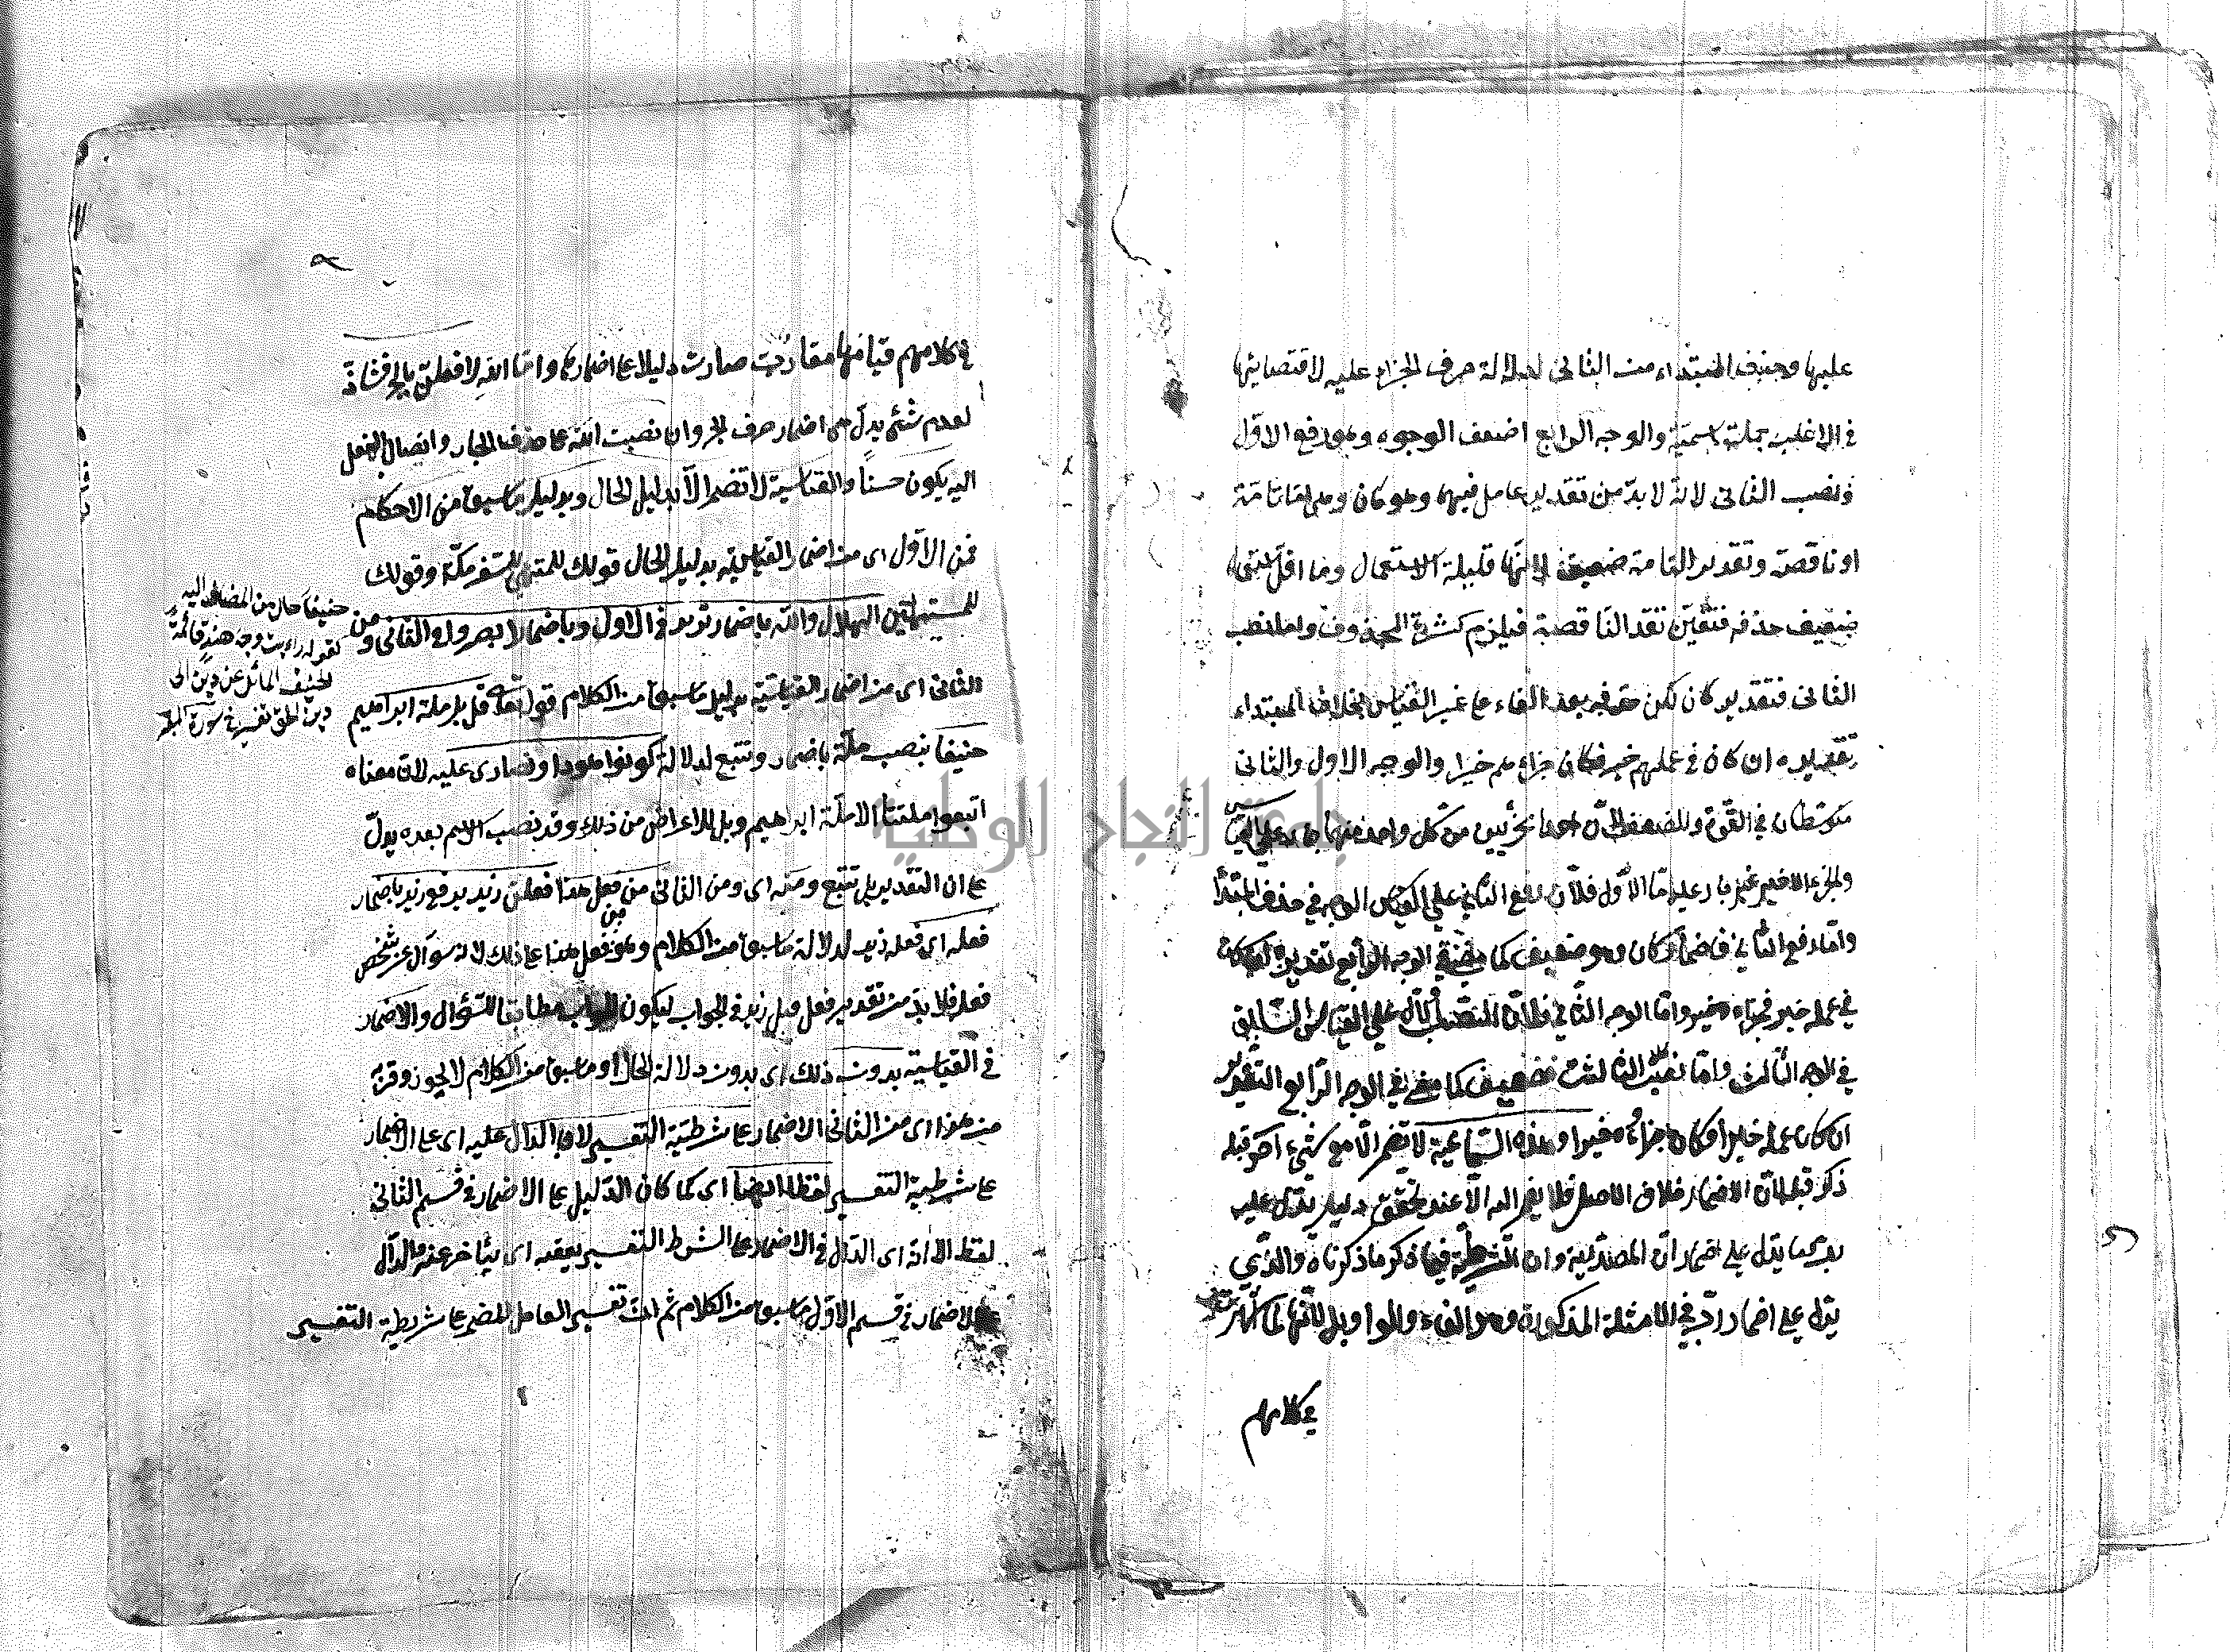 عليها وحذف المبتداء من الثانى لدلالة حرف الجزاء عليه لاقتضائها
فى الاغلب جملة اسمية والوجه الرابع اضعف الوجوه وهو رفع الاوّل
ونصب الثانى لانه لا بدّ من تقدير عامل فيهما وهو كان وهى اما تامّة
او ناقصة وتقدير التامة ضعيف لانّها قليلة الاستعمال وما اقلّ استعماله
ضعيف حذفه فتعيّن تقد الناقصة فيلزم كثرة المحذوف واما نصب
الثانى فتقدير كان لكن حذفه بعد الفاء على غير القياس بخلاف المبتداء
تقديره ان كان فى عملهم خير فكان جزاءهم خيرا والوجه الاول والثانى
متوسّطان فى القوّة والضعف لانّ احد الجزئين من كل واحد منهما جار على القياس
والجزء الاخير غير جار عليه امّا الاوّل فلانّ رفع الثانى على القياس الوجه فى حذف المبتدأ
وامّا رفع الثانى فباضمار كان وهو ضعيف كما مضى فى الوجه الرابع تقديره ان كان
فى عمله خير فجزاءه خير وامّا الوجه الثانى فلانّ النصب الاوّل على القياس السابق
فى الوجه الثالث وامّا نصب الثانى فضعيف كما مضى فى الوجه الرّابع التقدير
ان كان عمله خيرا فكان جزاءه خيرا وهذه السّماعية لا تضمر الّا مع شىء اخر قبله
ذكر قبله لانّ الاضمار خلاف الاصل فلا يضمر اليه الّا عند تحقق دليل يدلّ عليه
يدلّ على اضمار انّ المصدرية وان الشرطيّة فيما ذكر ما ذكرناه والذّى
يدلّ على اضمار ربّ فى الامثلة المذكورة وهو الفاء والواو وبل لانّها لما اكثر
فى كلامهم
فى كلامهم قيامها مقام ربّ صارت دليلا على اضمارها وامّا الله لافعلنّ بالجر فشاذّ
لعدم شئ يدلّ على اضمار حرف الجر وان نصبت الله على حذف الجار وايصال الفعل
اليه يكون حسناً والقياسية لا تضمر الّا بدليل الحال وبدليل ما سبق من الاحكام
فمن الاوّل اى من اضمار القياسية بدليل الحال قولك للمتهيئ للسفر مكّة وقولك
للمستهلّين الهلال والله باضمار تريد فى الاول وباضمار ابصروا فى الثانى ومن
الثانى اى من اضمار القياسيّة بدليل ما سبق من الكلام قوله تعالى قل بل ملة ابراهيم
حنيفا بنصب ملّة باضمار ونتبع لدلالة كونوا هودا او نصارى عليه لانّ معناه
اتبعوا ملّتنا الا ملّة ابراهيم وبل للاعراض من ذلك وقد نصب الاسم بعده يدلّ
على ان التقدير بل نتبع ومنه اى ومن الثانى من فعل هذا فعلت زيد برفع زيد باضمار
فعله اى فعله زيد لدلالة ما سبق من الكلام وهو من فعل هذا على ذلك لانه سوآل عن شخص
فعله فلا بدّ من تقدير فعل قبل زيد فى الجواب ليكون الجواب مطابقا للسّؤال والاضمار
فى القياسيّة بدون ذلك اى بدون دلالة الحال او ما سبق من الكلام لا يجوز وقريب
من هذا اى من الثانى الاضمار على شرطيّة التفسير لان الدّال عليه اى على الاضمار
على شرطية التفسير لفظ ايضاً اى كما كان الدّليل على الاضمار فى قسم الثانى
لفظ الّا انّه اى الدّال فى الاضمار على الشرط التفسير يعقبه اى يتأخر عنه والدّال
على الاضمار فى قسم الاوّل ما سبق من الكلام ثم انّ تفسير العامل المضمر على شريطة التفسير
حنيفا حال من المضاف اليه
كقوله رأيت وجه هندٍ قائمةً
الحنيف المائل عن دين الى
دين الحق تفسير فى سورة البقرة
جامعة النجاح الوطنية